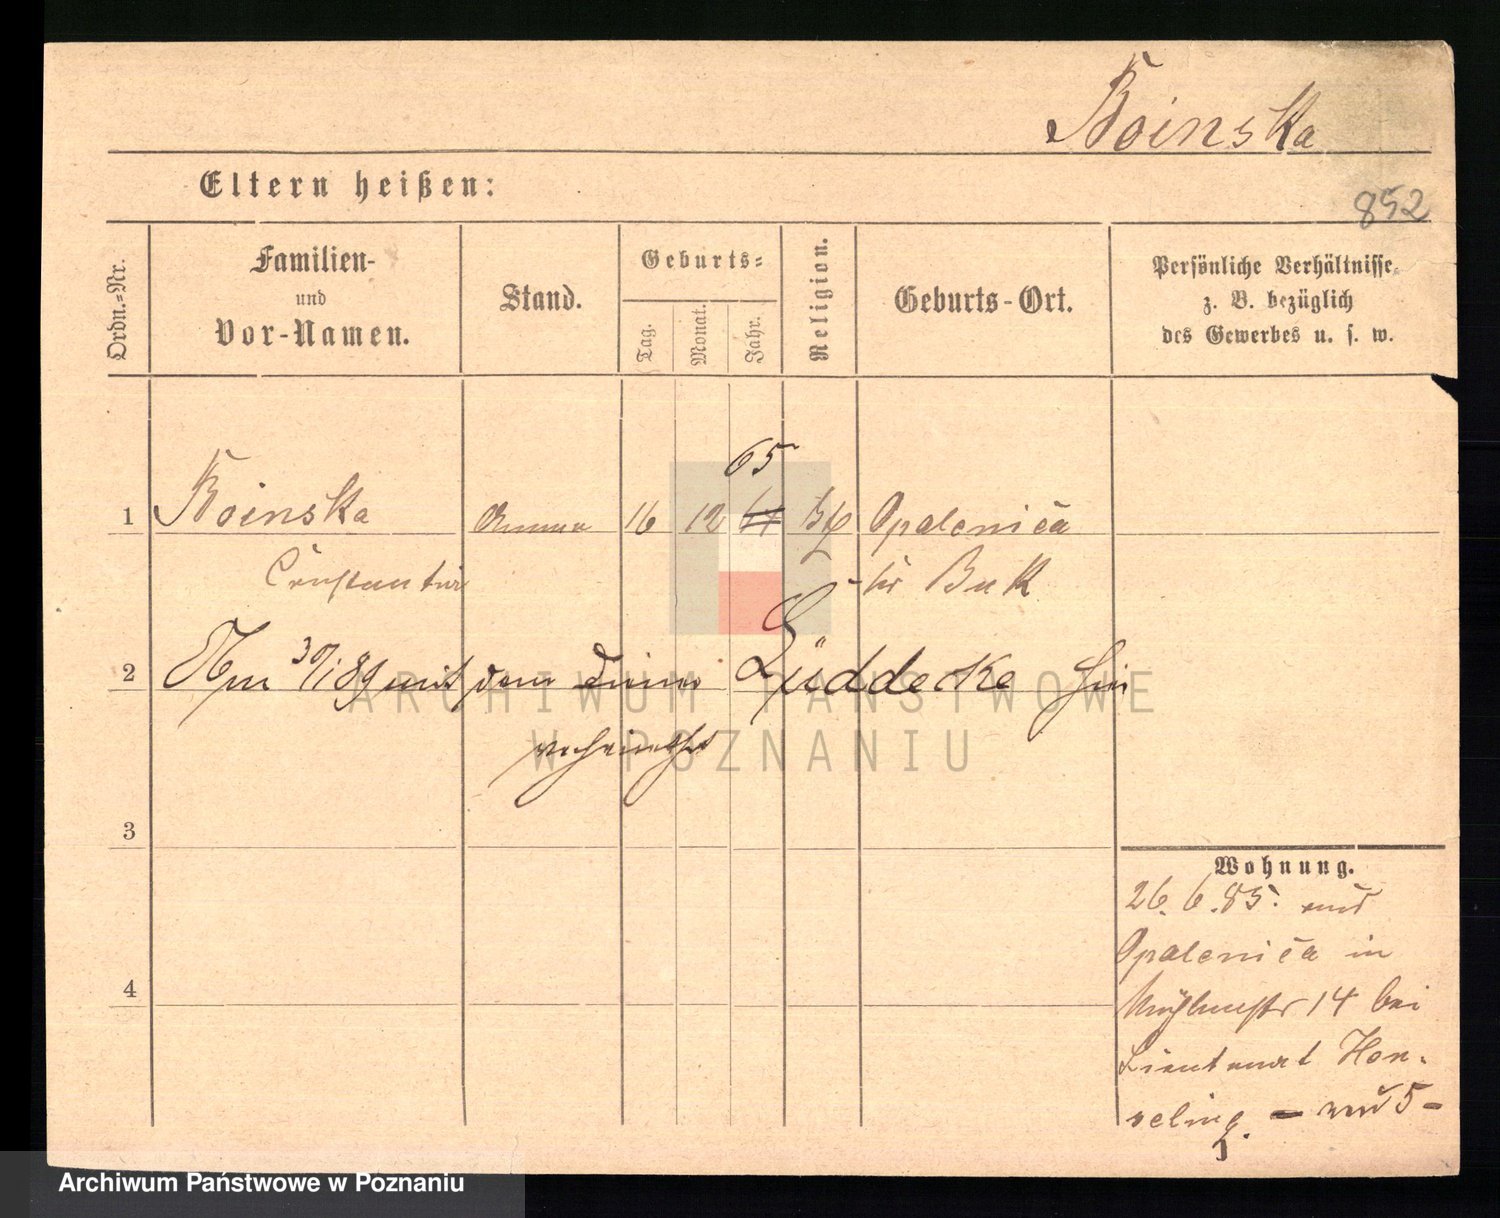 Boinska
Eltern heißen:
852
Ordn.=Nr.
Familien-
und
Vor-Namen.
Stand.
Geburts=
Tag.
Monat.
Jahr.
Religion.
Geburts-Ort.
Persönliche Verhältnisse,
z. B. bezüglich
des Gewerbes u. s. w.
65
1 Boinska Amme 16 12 64 kth Opalenića
Constantia Kr Buk
2 Am 30/1 89 mit dem Diener Lüddecke hier
verheirathet
ARCHIWUM PAŃSTWOWE
W POZNANIU
3
Wohnung.
26.6.85. aus
Opalenića in
4
Mühlenstr 14 bei
Lieutenant Hon-
seling.
Archiwum Państwowe w Poznaniu